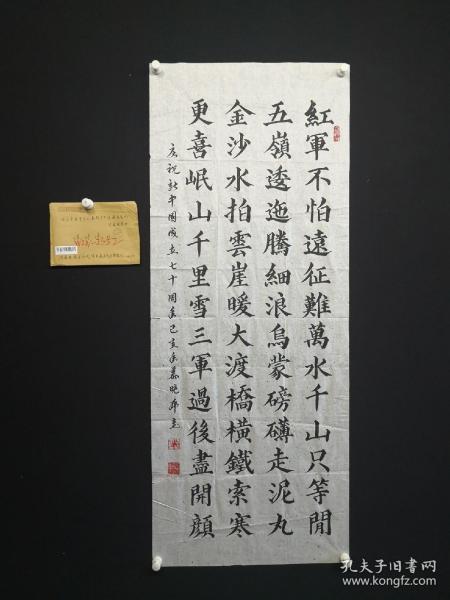 紅軍不怕遠征難萬水千山只等閒
五嶺逶迤騰細浪烏蒙磅礴走泥丸
金沙水拍雲崖暖大渡橋橫鐵索寒
更喜岷山千里雪三軍過後盡開顔
庆祝新中国成立七十周年己亥年
孔夫子旧书网
www.kongfz.com